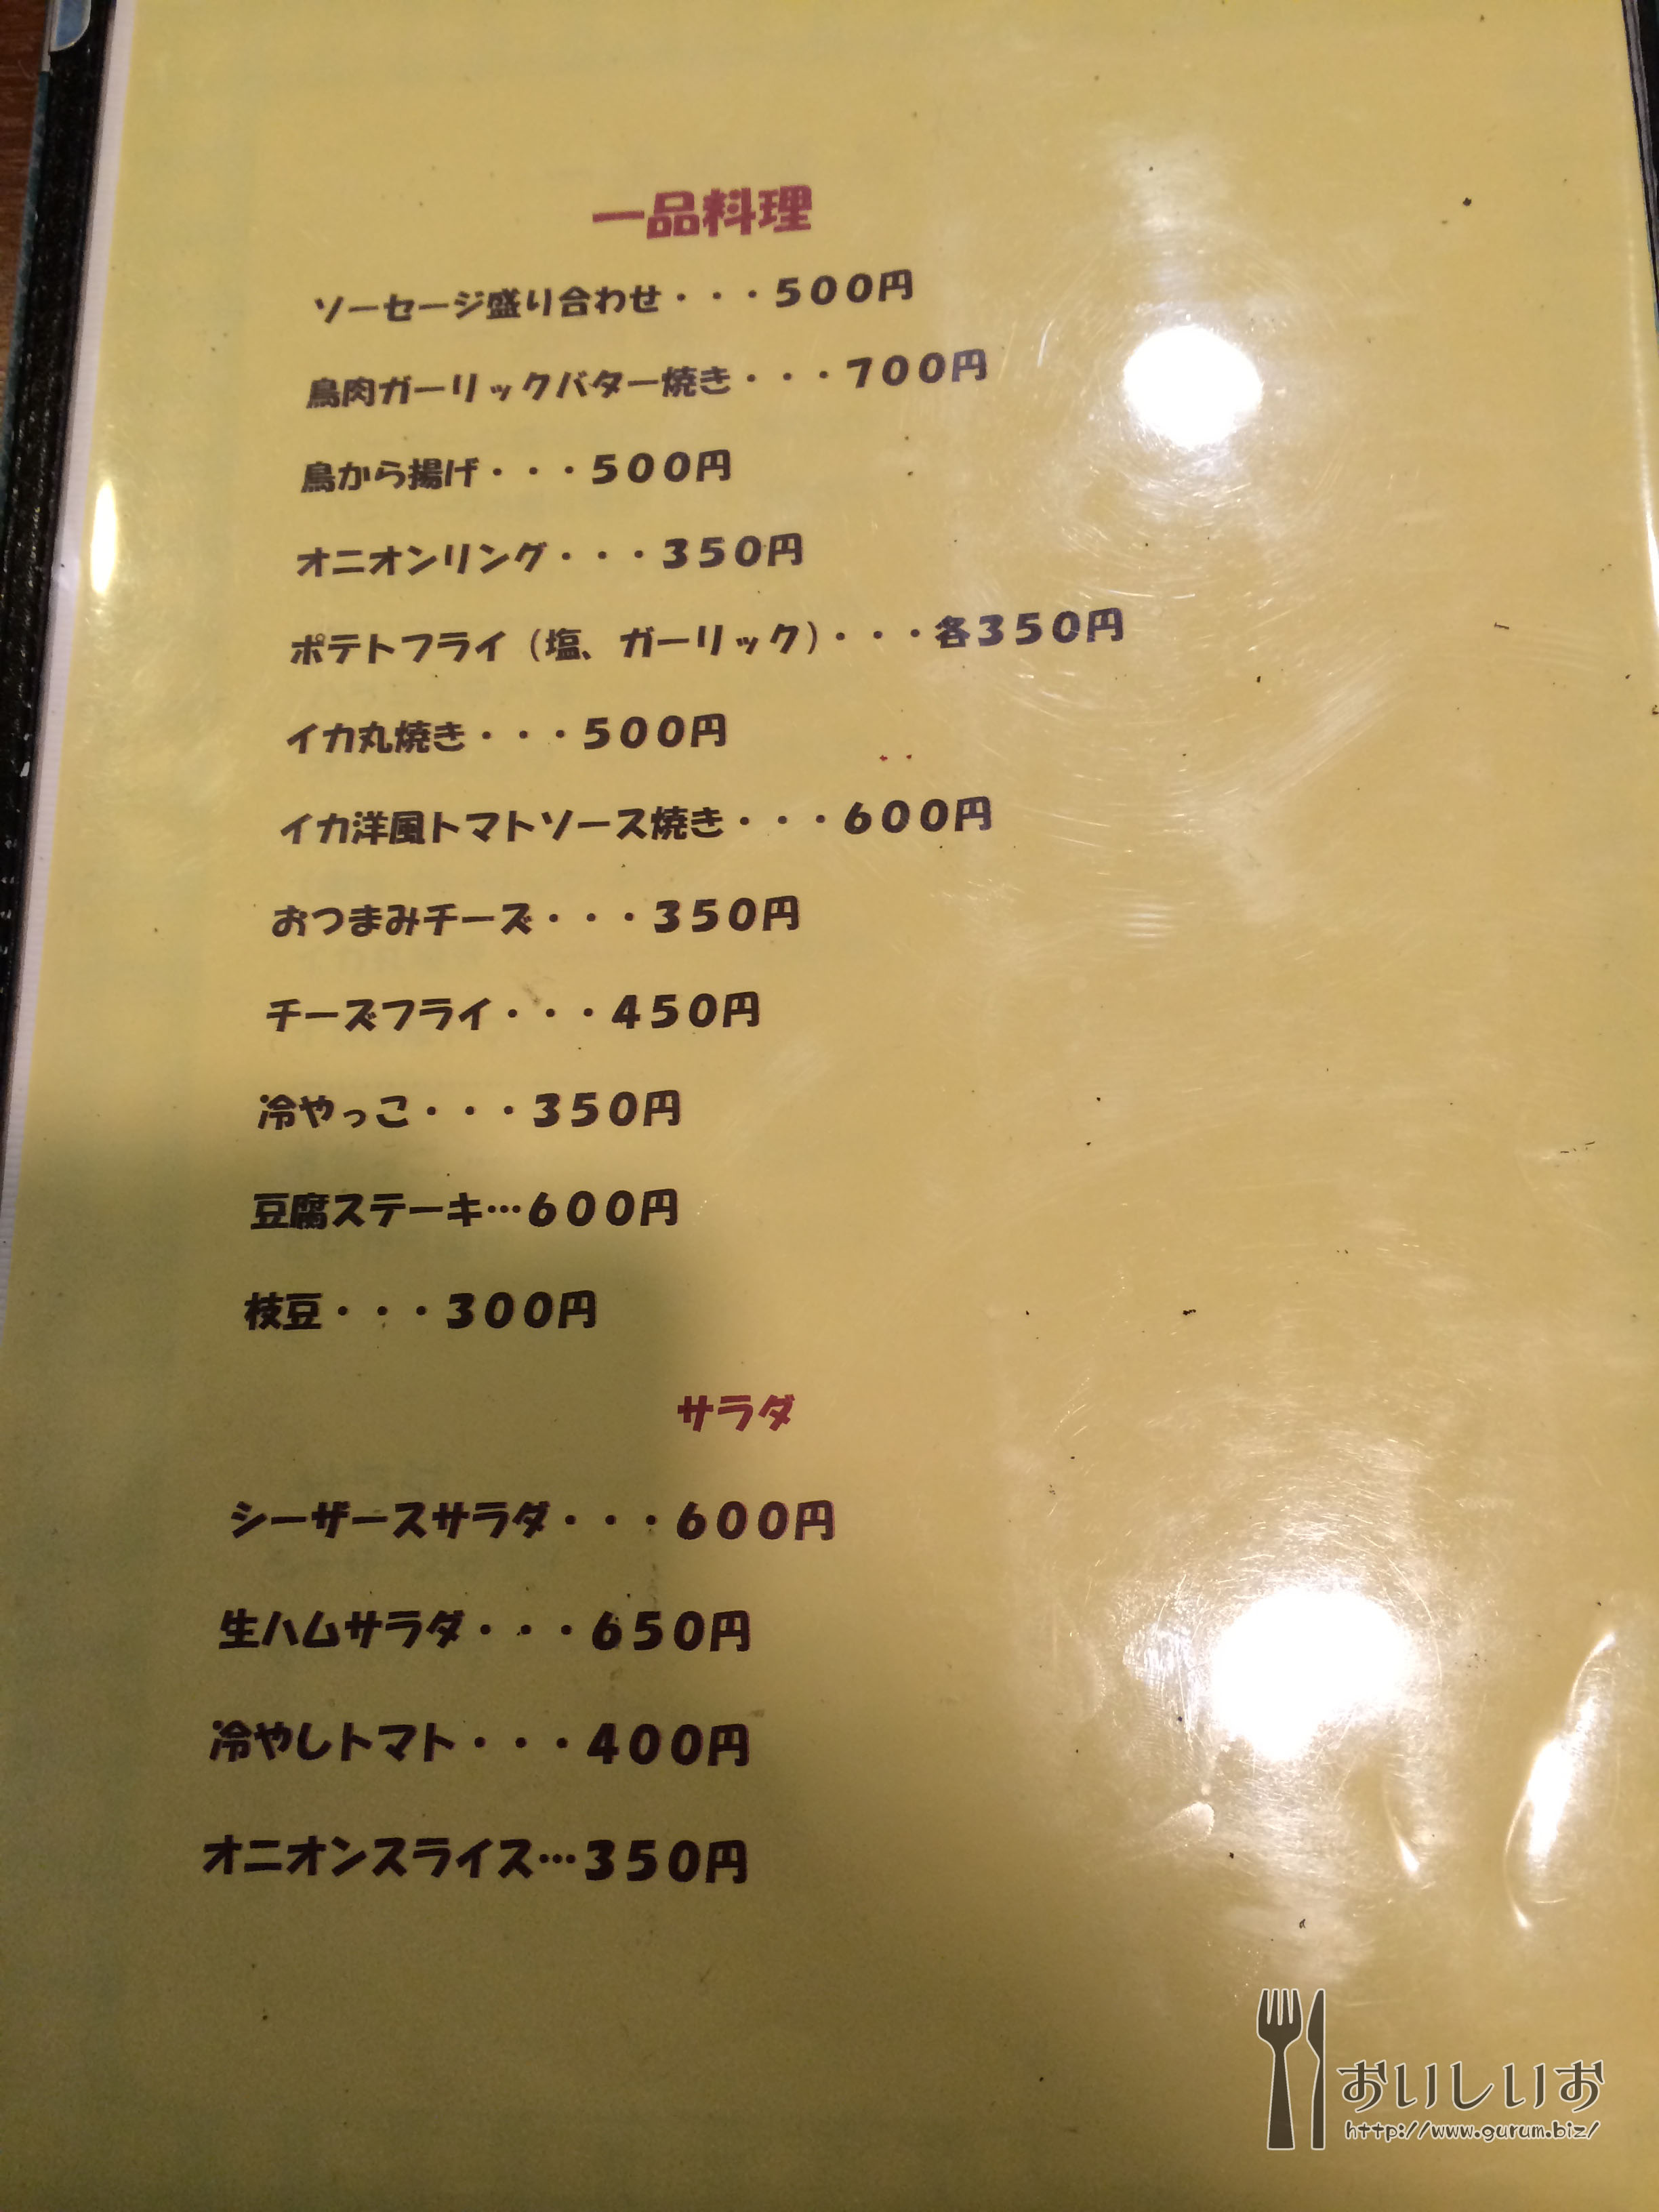 一品料理
ソーセージ盛り合わせ・・・５００円
鳥肉ガーリックバター焼き・・・７００円
鳥から揚げ・・・５００円
オニオンリング・・・３５０円
ポテトフライ（塩、ガーリック）・・・各３５０円
イカ丸焼き・・・５００円
イカ洋風トマトソース焼き・・・６００円
おつまみチーズ・・・３５０円
チーズフライ・・・４５０円
冷やっこ・・・３５０円
豆腐ステーキ…６００円
枝豆・・・３００円
サラダ
シーザースサラダ・・・６００円
生ハムサラダ・・・６５０円
冷やしトマト・・・４００円
オニオンスライス…３５０円
おいしいお
http://www.gurum.biz/